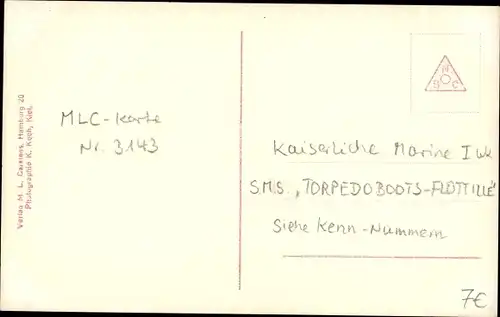 Verlag M. L. Carstens, Hamburg 20
Photographie K. Koch, Kiel.
MLC-Karte
Nr. 3143
Kaiserliche Marine I WK
S.M.S. „TORPEDOBOOTS-FLOTTILLE"
Siehe Kenn-Nummern
7€